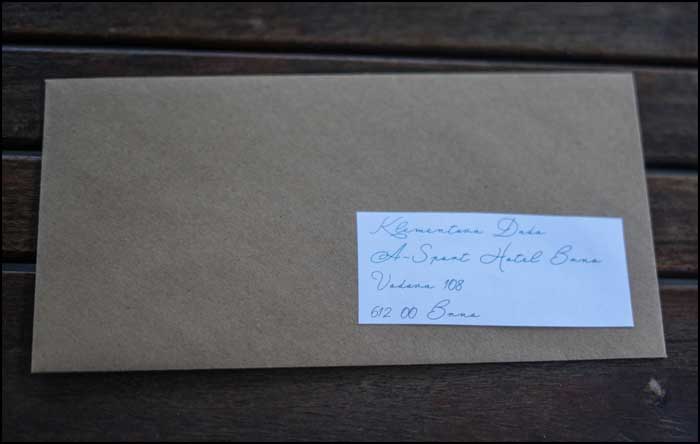 Klementova Dada
A-Sport Hotel Brno
Vodova 108
612 00 Brno